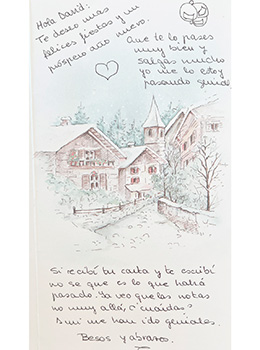 Hola David:
Te deseo unas
felices fiestas y un
próspero año nuevo.
Que te lo pases
muy bien y
salgas mucho
yo me lo estoy
pasando genial
Si recibí tu carta y te escribí
no se que es lo que habrá
pasado. Ya veo que las notas
no muy allá, ¿cuáidas?
A mi me han ido geniales.
Besos y abrazos.